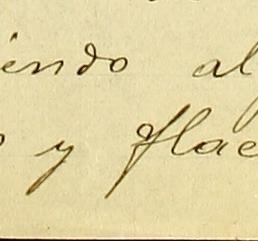 iendo al
y flac